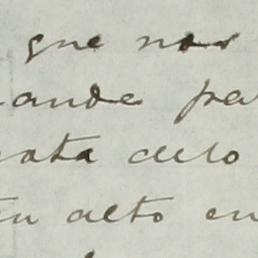 que nos
ande pa
rata delo
en alto en